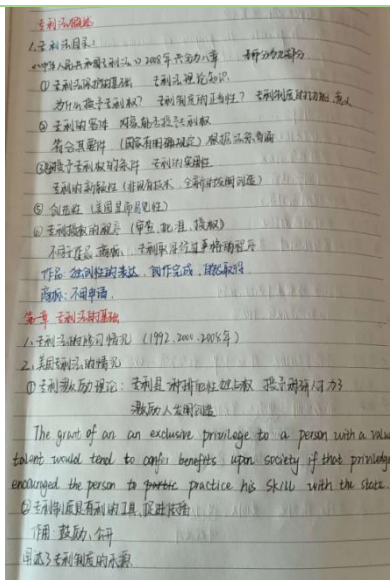 专利法概述
1.专利法目录:
《中华人民共和国专利法》2008年 共分为八章 部分
① 专利法保护的基础 专利法理论知识
为什么授予专利权? 专利制度的正当性? 专利制度的功能、意义
② 专利的客体 对象能否授予专利权
符合其要件 (国家有明确规定)
③ 授予专利权的条件 专利的实用性
专利的新颖性 (非现有技术、全新的发明创造)
⑤ 创造性 (美国显而易见性)
⑥ 专利授权的程序 (审查、批准、授权)
不同于作品、商标, 专利取得经过事将程序
作品: 独创性的表达, 创作完成, 自然取得
商标: 不用申请.
第一章 专利法的基础
1.专利法的修订情况 (1992、2000、2008年)
2.美国专利法的情况
① 专利激励理论: 专利是一种排他性独占权 授予
激励人发明创造
The grant of an an exclusive privilege to a person with a
talent would tend to confer benefits upon society if that privilege
encouraged the person to practice his skill with the state.
② 专利制度是有利的工具, 促进技活
作用: 鼓励、公开
阐述了专利制度的